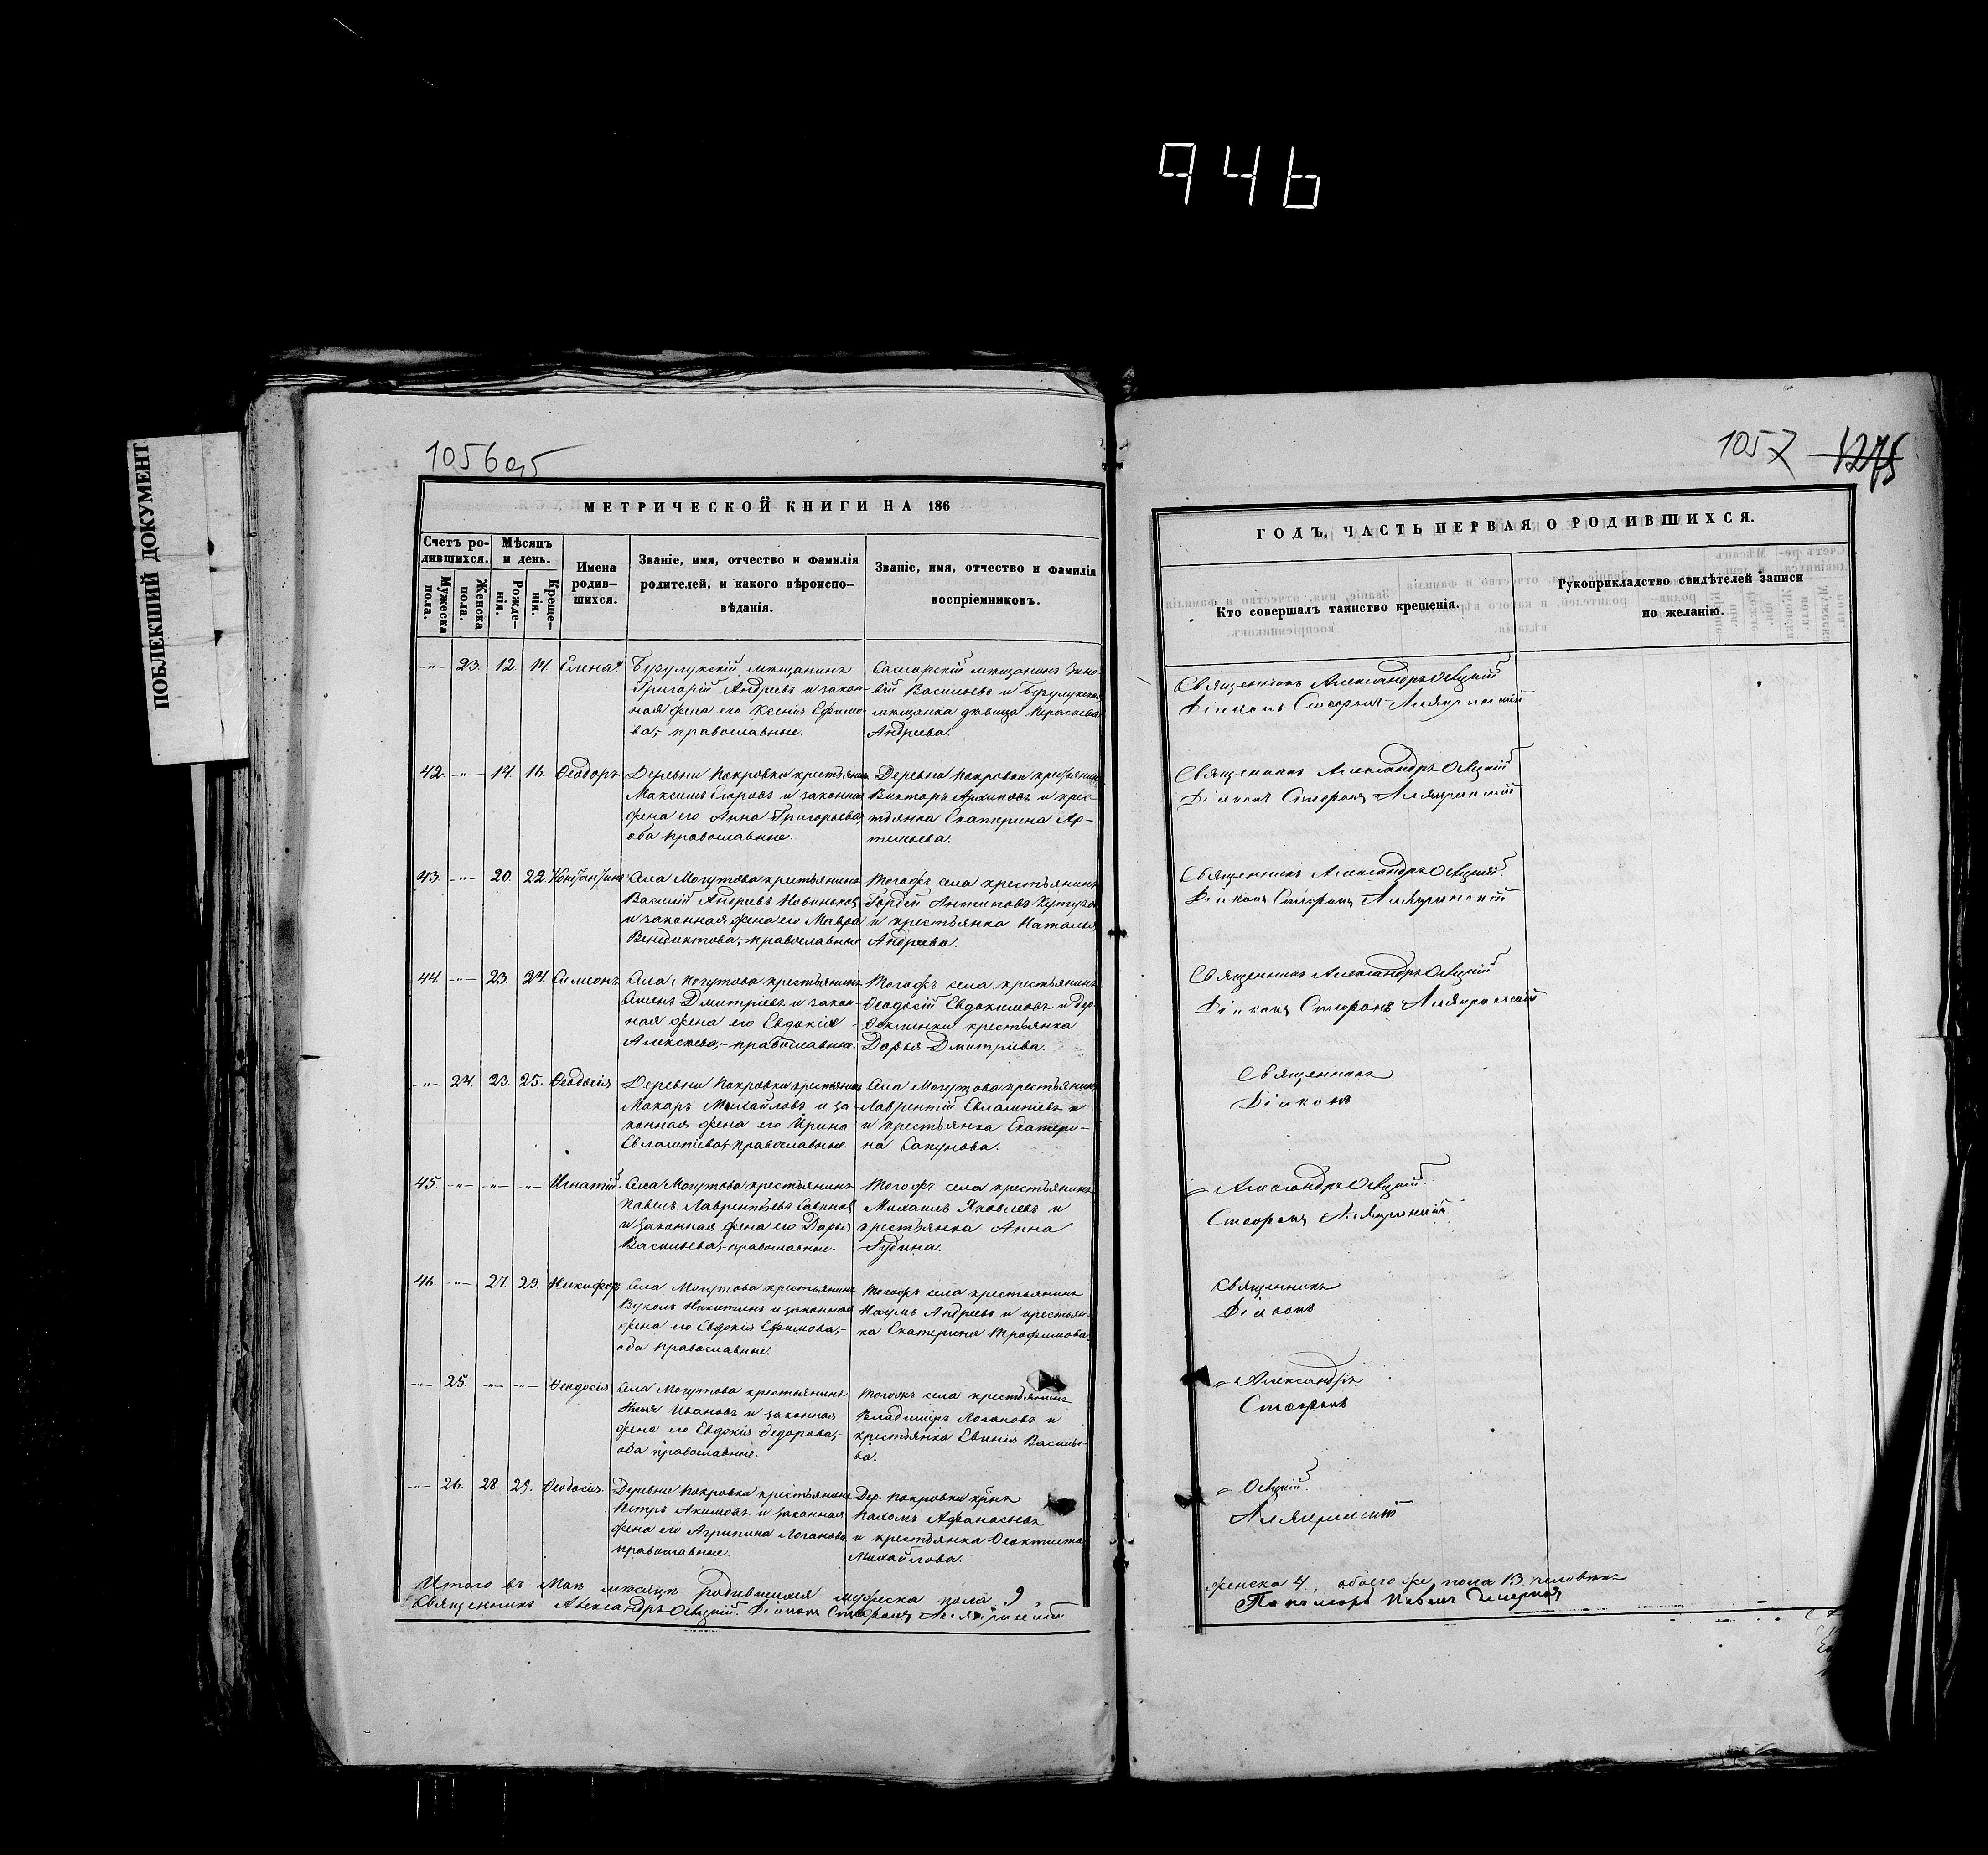 946
ПОБЛЕКШИЙ ДОКУМЕНТ
1056 об
МЕТРИЧЕСКОЙ КНИГИ НА 186
Счетъ родившихся.
Мужеска пола.
Женска пола.
Мѣсяцъ и день.
Рожденія.
Крещенія.
Имена родившихся.
Званіе, имя, отчество и фамилія
родителей, и какого вѣроиспо-
вѣданія.
Званіе, имя, отчество и фамилія
воспріемниковъ.
-"- 23. 12. 14. Елена
Бузулукскій мѣщанинъ
Григорій Андреевъ и закон-
ная жена его Ксенія Ефимо-
ва,- православные.
Самарскій мѣщанинъ Зино-
вій Васильевъ и Бузулукская
мѣщанка дѣвица Параскева
Андреева.
42. -"- 14. 16. Ѳеодоръ.
Деревни Покровки крестьянинъ
Максимъ Егоровъ и законная
жена его Анна Григорьева,
оба православные.
Деревни Покровки крестьянинъ
Викторъ Архиповъ и крес-
тьянка Екатерина Ар-
темьева.
43. -"- 20. 22. Константинъ
Села Могутова крестьянинъ
Василій Андреевъ Новиньковъ
и законная жена его Мавра
Венедиктова,- православные
Тогожъ села крестьянинъ
Гордѣй Антиповъ Кутузовъ
и крестьянка Наталья
Андреева.
44. -"- 23. 24. Симеонъ
Села Могутова крестьянинъ
Семенъ Дмитріевъ и закон-
ная жена его Евдокія
Алексѣева,- православные.
Тогожъ села крестьянинъ
Ѳеодосій Евдокимовъ и дер.
крестьянка
Дарья Дмитріева.
-"- 24. 23. 25. Ѳеодосія
Деревни Покровки крестьянинъ
Макаръ Михайловъ и за-
конная жена его Ирина
Евлампіева, православные.
Села Могутова крестьянинъ
Лаврентій Евлампіевъ и
и крестьянка Екатери-
на Сапунова.
45. -"- -"- -"- Игнатій.
Села Могутова крестьянинъ
Павелъ Лаврентьевъ Савинъ
и законная жена его Дарья
Васильева,- православные.
Тогожъ села крестьянинъ
Михаилъ Яковлевъ и
крестьянка Анна
Гудина.
46. -"- 27. 29. Никифоръ
Села Могутова крестьянинъ
Вуколъ Никитинъ и законная
жена его Евдокія Ефимова,-
оба православные.
Тогожъ села крестьянинъ
Наумъ Андреевъ и крестьян-
ка Екатерина Трофимова.
-"- 25. -"- -"- Ѳеодосія
Села Могутова крестьянинъ
Илья Ивановъ и законная
жена его Евдокія Ѳедорова,-
оба православные.
Тогожъ села крестьянинъ
Владиміръ Логиновъ и
крестьянка Евгенія Василье-
ва.
-"- 26. 28. 29. Ѳеодосія.
Деревни Покровки крестьянинъ
Петръ Акимовъ и законная
жена его Агрипина Логинова
православные.
Дер. Покровки крнъ
Пахомъ Афанасьевъ
и крестьянка Ѳеоктиста
Михайлова.
Итого въ Маѣ мѣсяцѣ родившихся мужеска пола 9,
Священникъ Александръ Діаконъ Стефанъ
1057
1275
ГОДЪ, ЧАСТЬ ПЕРВАЯ О РОДИВШИХСЯ.
Кто совершалъ таинство крещенія.
Рукоприкладство свидѣтелей записи
по желанію.
Священникъ Александръ
Діаконъ Стефанъ
Священникъ Александръ
Діаконъ Стефанъ
Священникъ Александръ
Діаконъ Стефанъ
Священникъ Александръ
Діаконъ Стефанъ
Священникъ
Діаконъ
Александръ
Стефанъ
Священникъ
Діаконъ
Александръ
Стефанъ
женска 4, обоего же пола 13 человѣкъ
Пономарь Павелъ